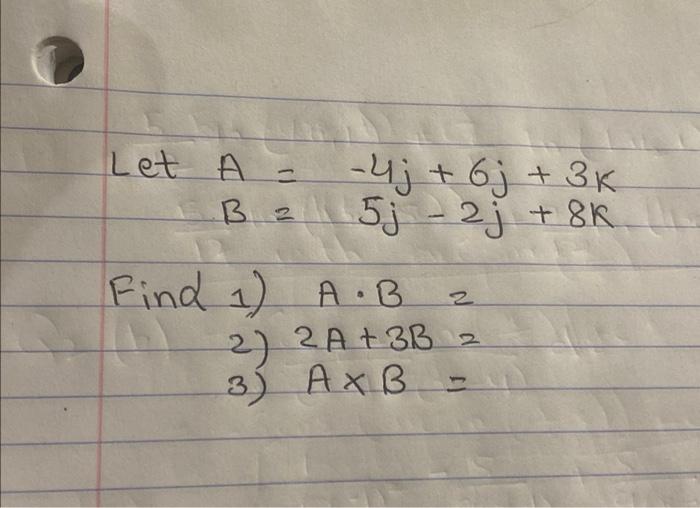 Let A = -4j + 6j + 3k
B = 5j - 2j + 8k
Find 1) A · B =
2) 2A + 3B =
3) A x B =